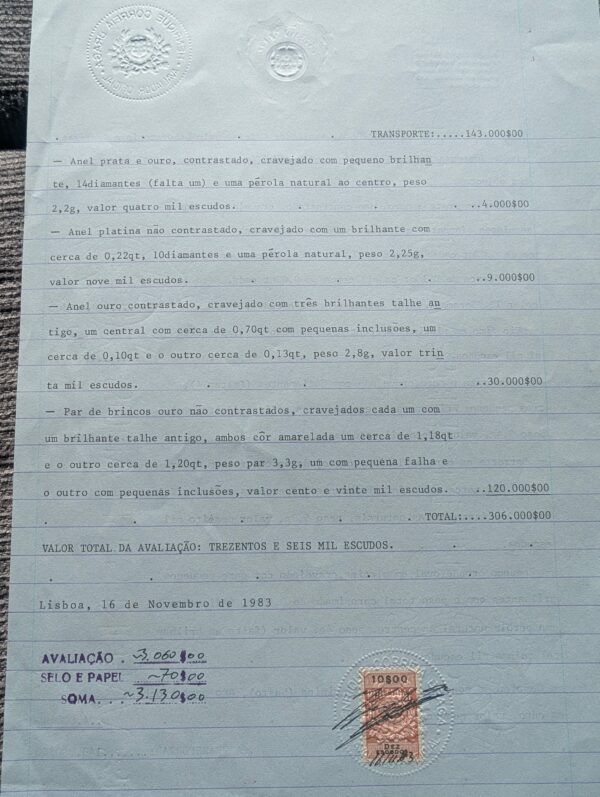 . . . . TRANSPORTE:.....143.000$00
— Anel prata e ouro, contrastado, cravejado com pequeno brilhan
te, 14diamantes (falta um) e uma pérola natural ao centro, peso
2,2g, valor quatro mil escudos. . . . . ..4.000$00
— Anel platina não contrastado, cravejado com um brilhante com
cerca de 0,22qt, 10diamantes e uma pérola natural, peso 2,25g,
valor nove mil escudos. . . . . ..9.000$00
— Anel ouro contrastado, cravejado com três brilhantes talhe an
tigo, um central com cerca de 0,70qt com pequenas inclusões, um
cerca de 0,10qt e o outro cerca de 0,13qt, peso 2,8g, valor trin
ta mil escudos. . . . . ..30.000$00
— Par de brincos ouro não contrastados, cravejados cada um com
um brilhante talhe antigo, ambos côr amarelada um cerca de 1,18qt
e o outro cerca de 1,20qt, peso par 3,3g, um com pequena falha e
o outro com pequenas inclusões, valor cento e vinte mil escudos. ..120.000$00
. . . . . TOTAL:....306.000$00
VALOR TOTAL DA AVALIAÇÃO: TREZENTOS E SEIS MIL ESCUDOS. . .
. . . . .
Lisboa, 16 de Novembro de 1983
AVALIAÇÃO . ~3.060$00
SELO E PAPEL ~70$00
SOMA. . . ~3.130$00
10$00
DEZ
ESCUDOS